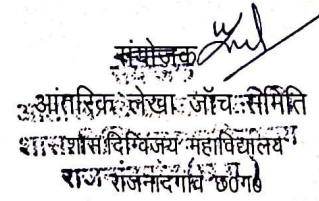 संयोजक
आंतरिक लेखा जॉच समिति
शास. दिग्विजय महाविद्यालय
राजनांदगांव छ०ग०